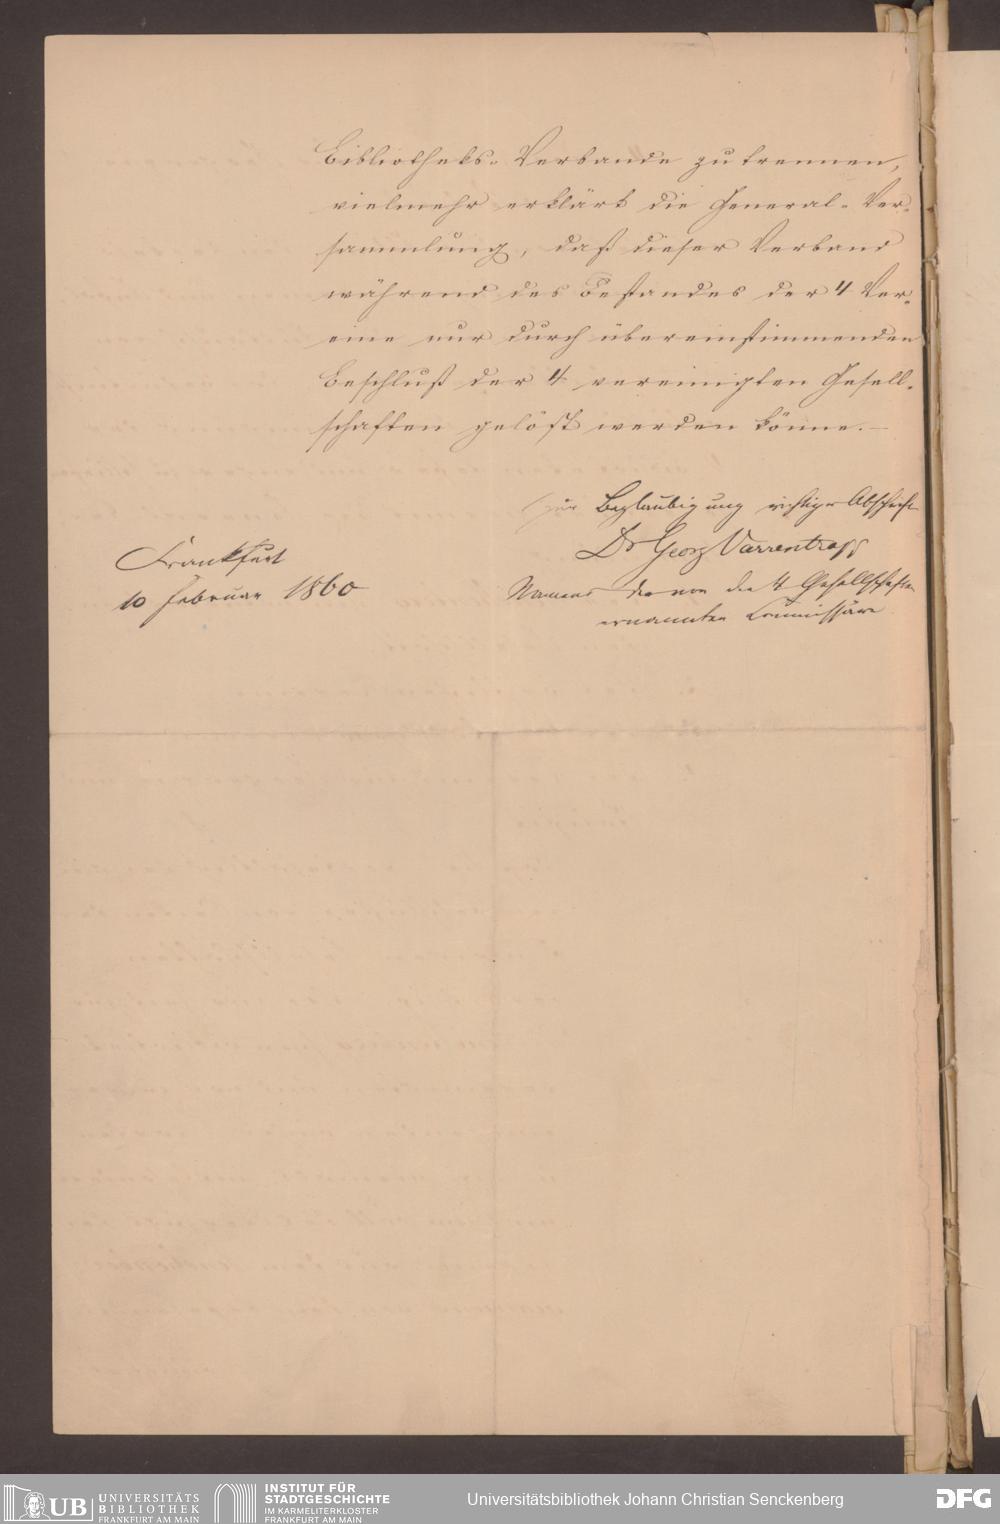 Bibliotheks-Verbande zu trennen,
vielmehr erklärt die General-Ver-
sammlung, daß dieser Verband
während des Bestandes der 4 Ver-
eine nur durch übereinstimmenden
Beschluß der 4 vereinigten Gesell-
schaften gelöst werden könne.—
Für Beglaubigung richtiger Abschrift
Dr Georg Varrentrapp
Namens der von den 4 Gesellschaften
ernannten Commissäre
Frankfurt
10 Februar 1860
UB UNIVERSITÄTS
BIBLIOTHEK
FRANKFURT AM MAIN
INSTITUT FÜR
STADTGESCHICHTE
IM KARMELITERKLOSTER
FRANKFURT AM MAIN
Universitätsbibliothek Johann Christian Senckenberg
DFG